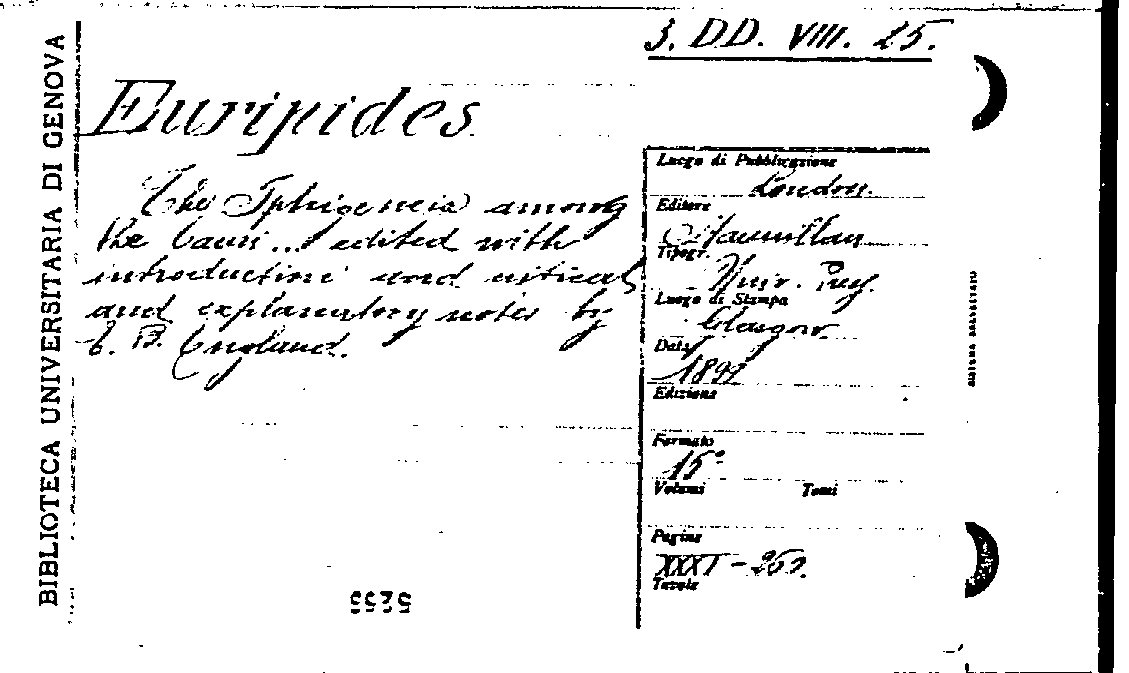 3. DD. VIII. 25.
BIBLIOTECA UNIVERSITARIA DI GENOVA
Euripides.
The Iphigeneia among
the Tauri... edited with
introduction and critical
and explanatory notes by
E. B. England.
Luogo di Pubblicazione
London.
Editore
Macmillan
Tipogr.
Luogo di Stampa
Glasgow.
Data
Edizione
Formato
15°
Volumi Tomi
Pagine
Tavole
5255